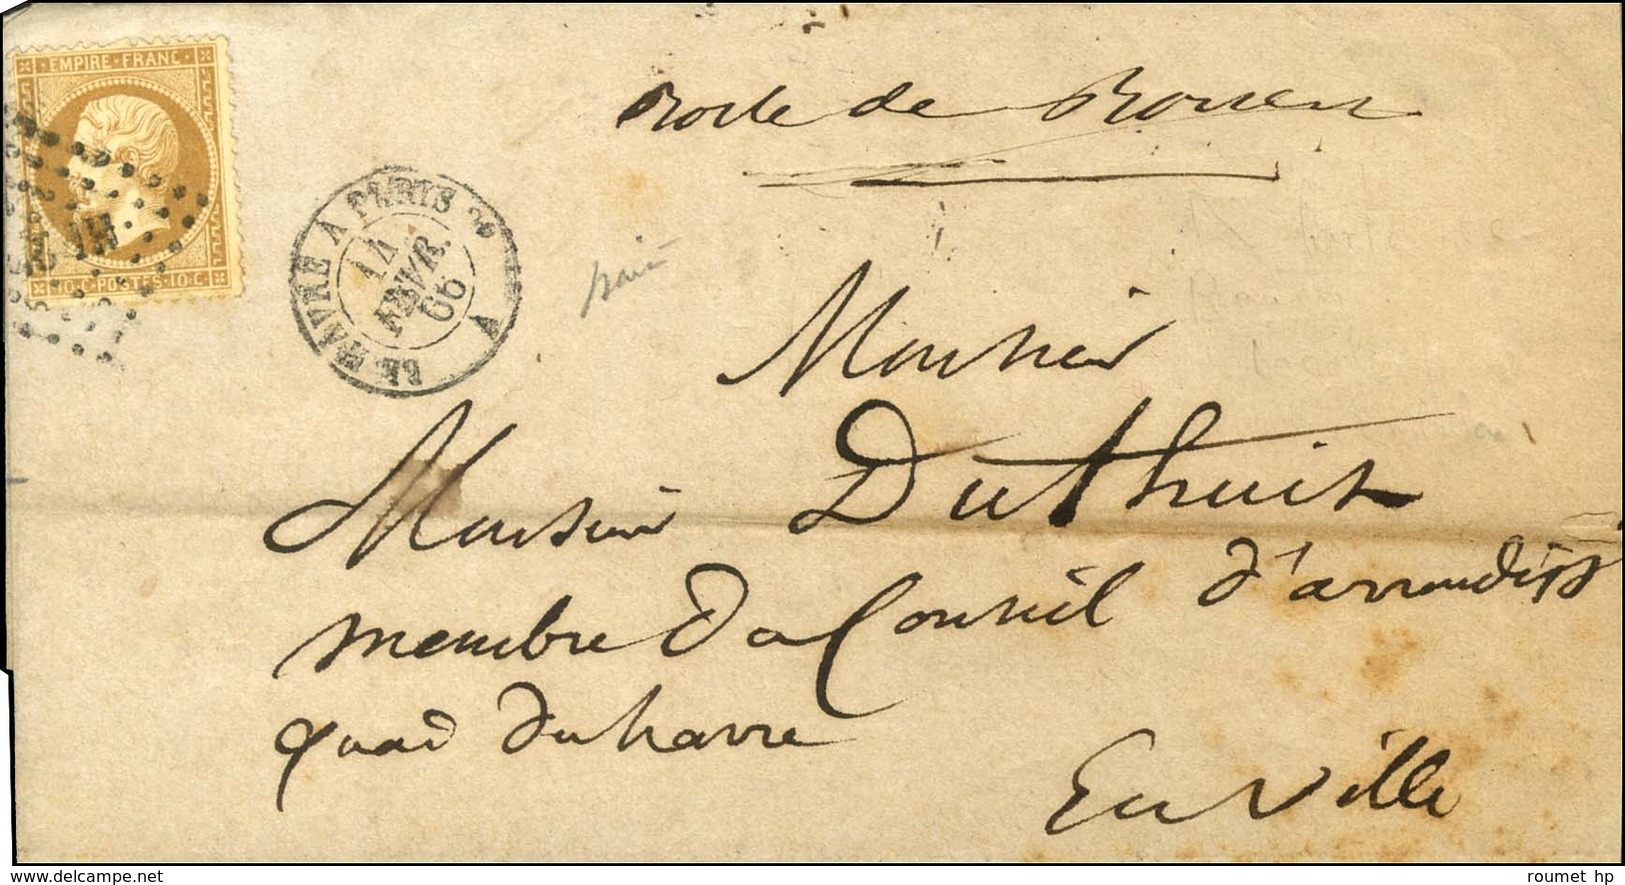 EMPIRE · FRANC
10·C·POSTES·10·C
LE HAVRE A PARIS 2º
14
FEVR.
66
A
Poste de Rouen
Monsieur
Monsieur Duthuit
membre du Conseil d'arrondiss
quai du havre
En Ville
www.delcampe.net
roumet hp